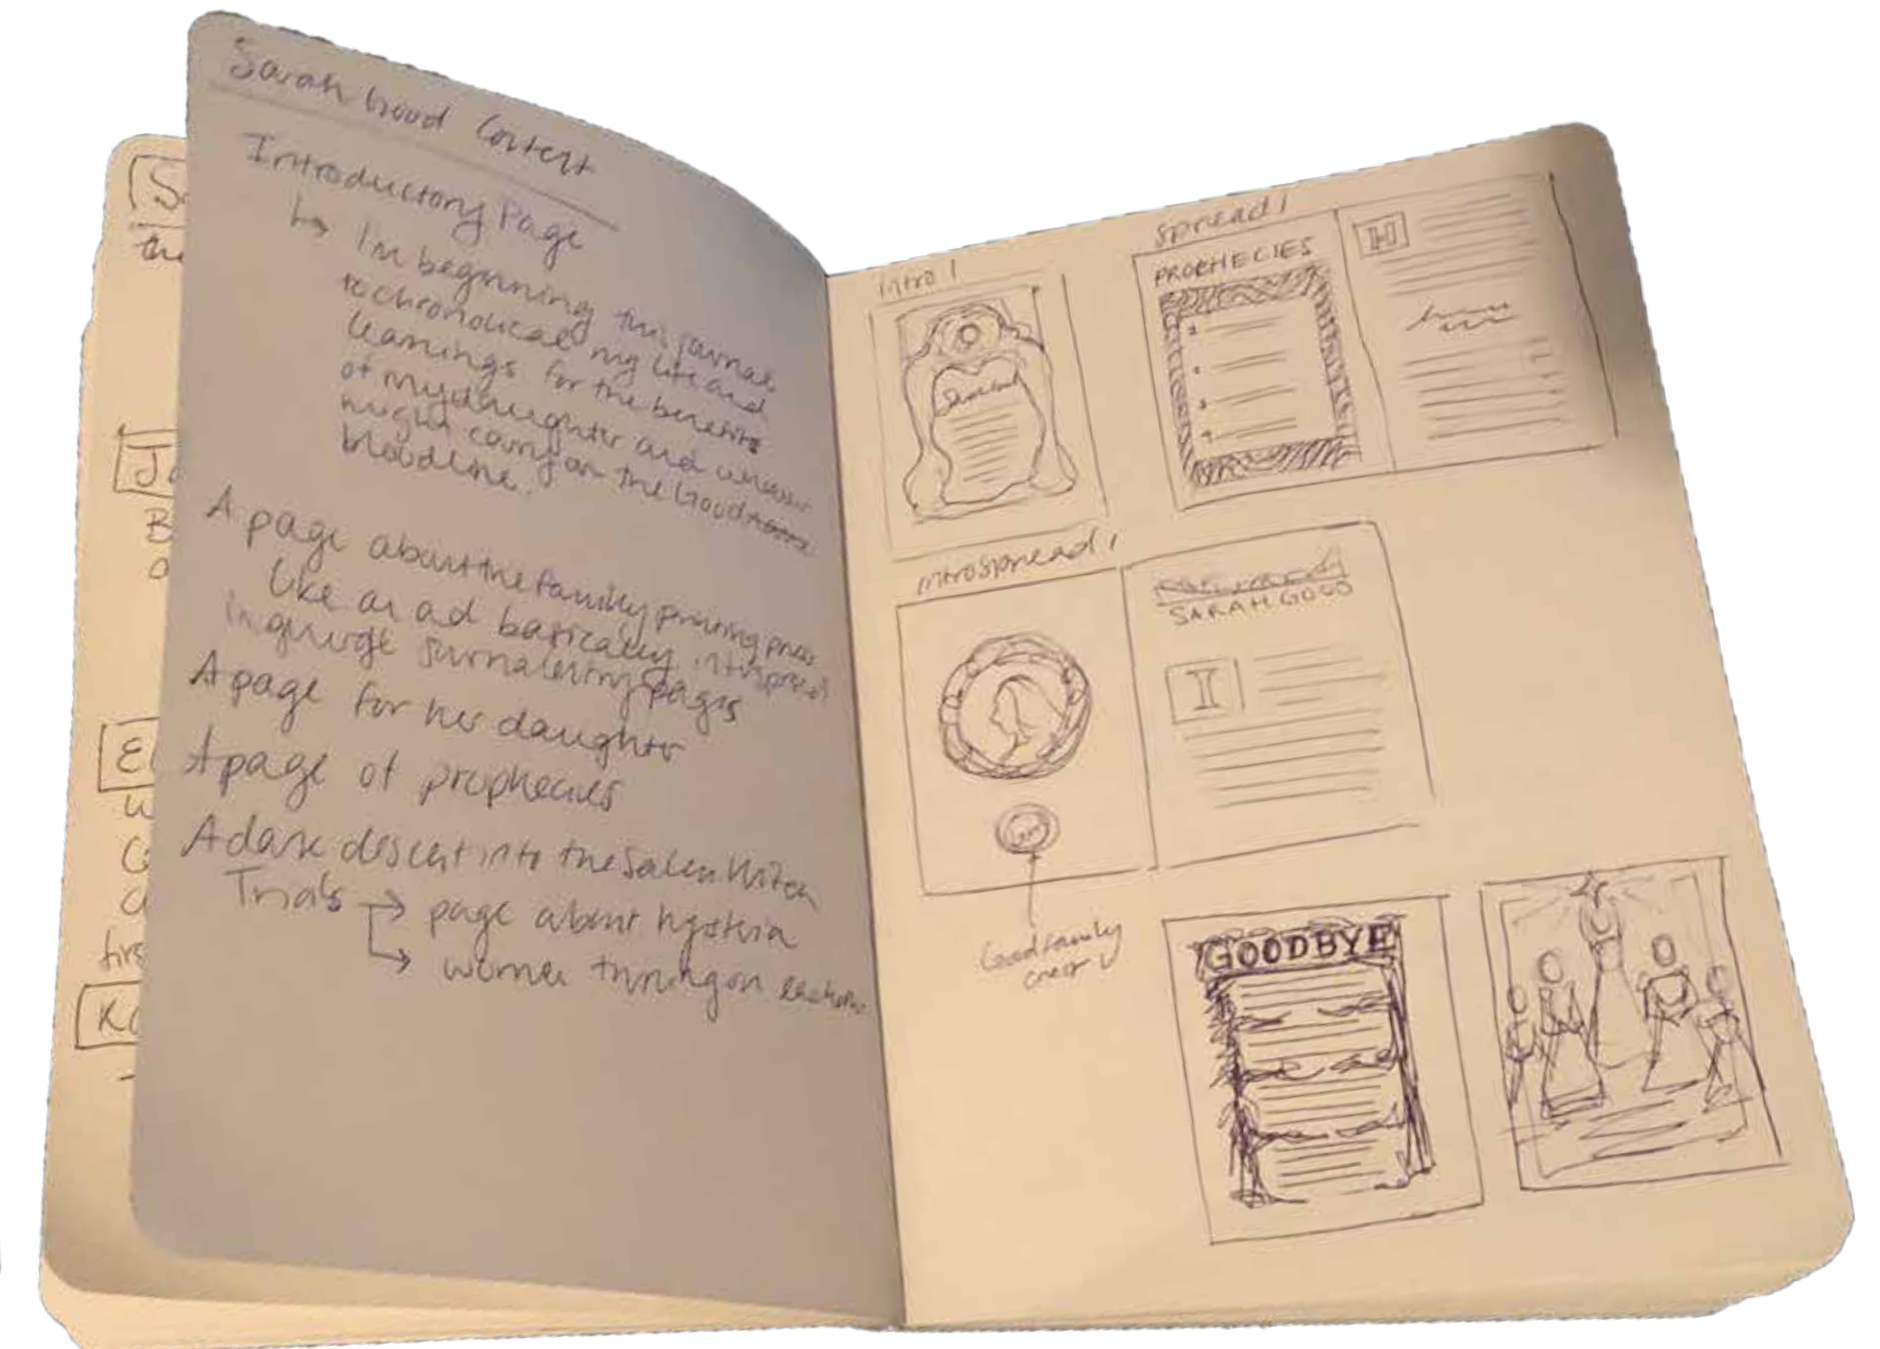 Sarah Good Content
Introductory Page
↳ I'm beginning this journal
to chronolical my life and
learnings for the benefits
of my daughter and whoever
might carry on the Good
bloodline.
A page about the family printing press
like an ad basically interspread
in journaling pages
A page for her daughter
A page of prophecies
A dark descent into the Salem Witch
Trials → page about hysteria
↳ women turning on eachother
S
the
J
B
a
E
w
Co
firs
Ka
intro 1
spread 1
PROPHECIES
H
1
3
4
introspread 1
SARAH GOOD
I
Good family
crest
GOODBYE